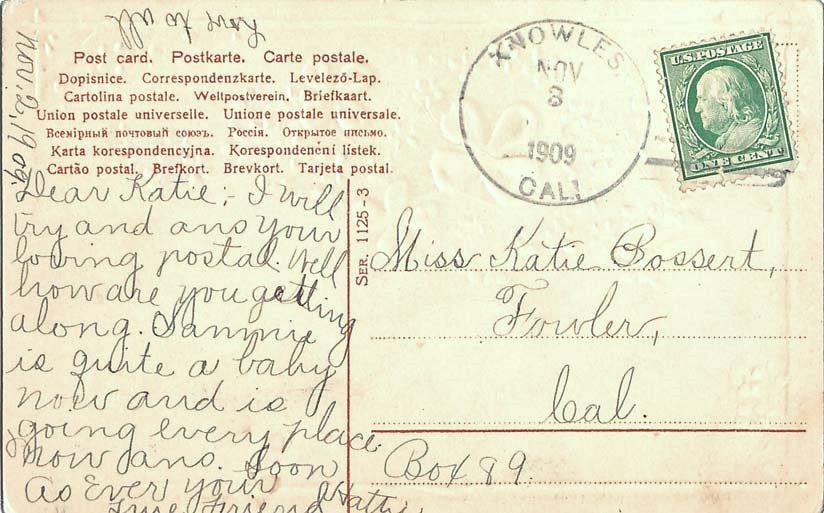 love to all
Nov. 2, 1909.
Post card. Postkarte. Carte postale.
Dopisnice. Correspondenzkarte. Levelező-Lap.
Cartolina postale. Weltpostverein. Briefkaart.
Union postale universelle. Unione postale universale.
Всемірный почтовый союзъ. Россія. Открытое письмо.
Karta korespondencyjna. Korespondenční lístek.
Cartão postal. Brefkort. Brevkort. Tarjeta postal.
KNOWLES
NOV
3
1909
CAL.
U.S. POSTAGE
ONE CENT
Dear Katie;- I will
try and ans your
loving postal. Well
how are you getting
along. Sammie
is quite a baby
now and is
going every place
now ans. soon
As Ever your
True Friend Hattie
SER. 1125-3
Miss Katie Bossert,
Fowler,
Cal.
Box 89